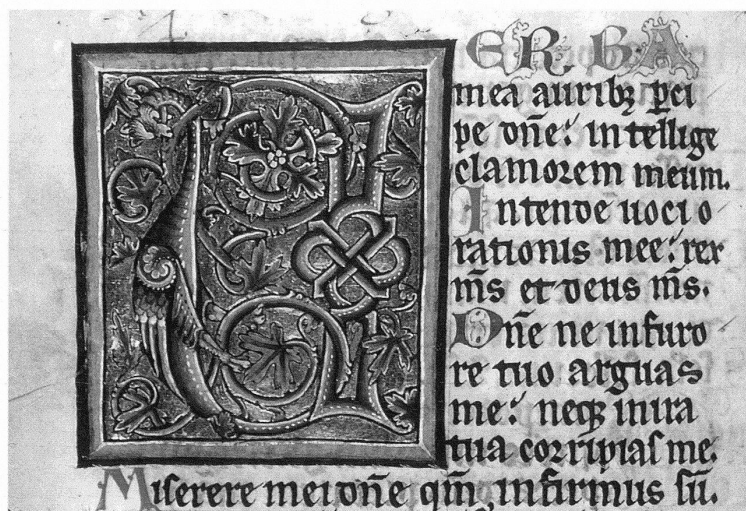 VERBA
mea auribꝫ ꝑci
pe dn̄e: intellige
clamorem meum.
Intende uoci o
rationis mee: rex
m̄s et deus m̄s.
Dn̄e ne in furo
re tuo arguas
me: neqꝫ in ira
tua corripias me.
Miserere mei dn̄e qm̄, infirmus sū.